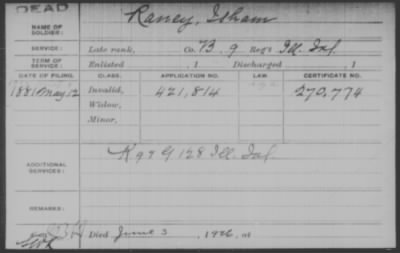 DEAD
NAME OF SOLDIER: Raney, Isham
SERVICE: Late rank, Co. B, 9 Reg't Ill. Inf.
TERM OF SERVICE: Enlisted , 1 Discharged , 1
DATE OF FILING. CLASS. APPLICATION NO. LAW CERTIFICATE NO.
1881 May 12 Invalid, 421,814 270,774
Widow,
Minor,
ADDITIONAL SERVICES: K 9 & G 128 Ill. Inf.
REMARKS:
Died June 3, 1926, at